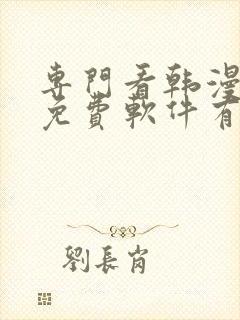 專門看韩漫
免費軟件有
劉長肖